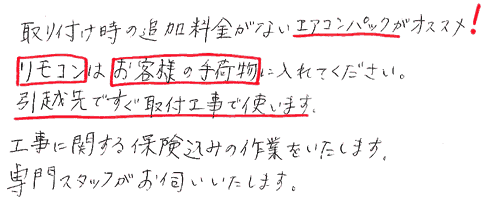 取り付け時の追加料金がないエアコンパックがオススメ!
リモコンはお客様の手荷物に入れてください。
引越先ですぐ取付工事で使います。
工事に関する保険込みの作業をいたします。
専門スタッフがお伺いいたします。